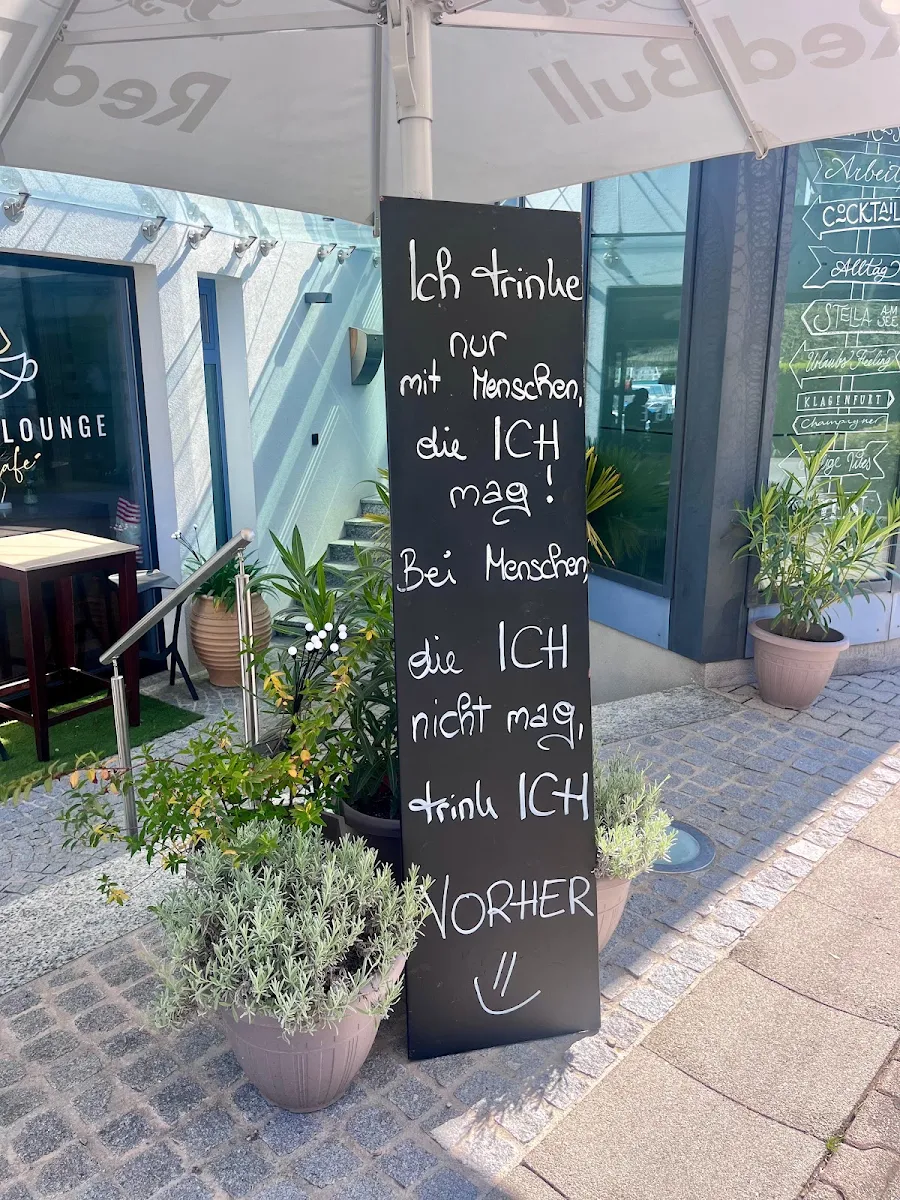 RedBull
Red
Ich trinke
nur
mit Menschen,
die ICH
mag!
Bei Menschen,
die ICH
nicht mag,
trink ICH
VORHER
LOUNGE
Arbeit
COCKTAIL
Alltag
STELLA AM SEE
Urlaubs Feeling
KLAGENFURT
Champagner